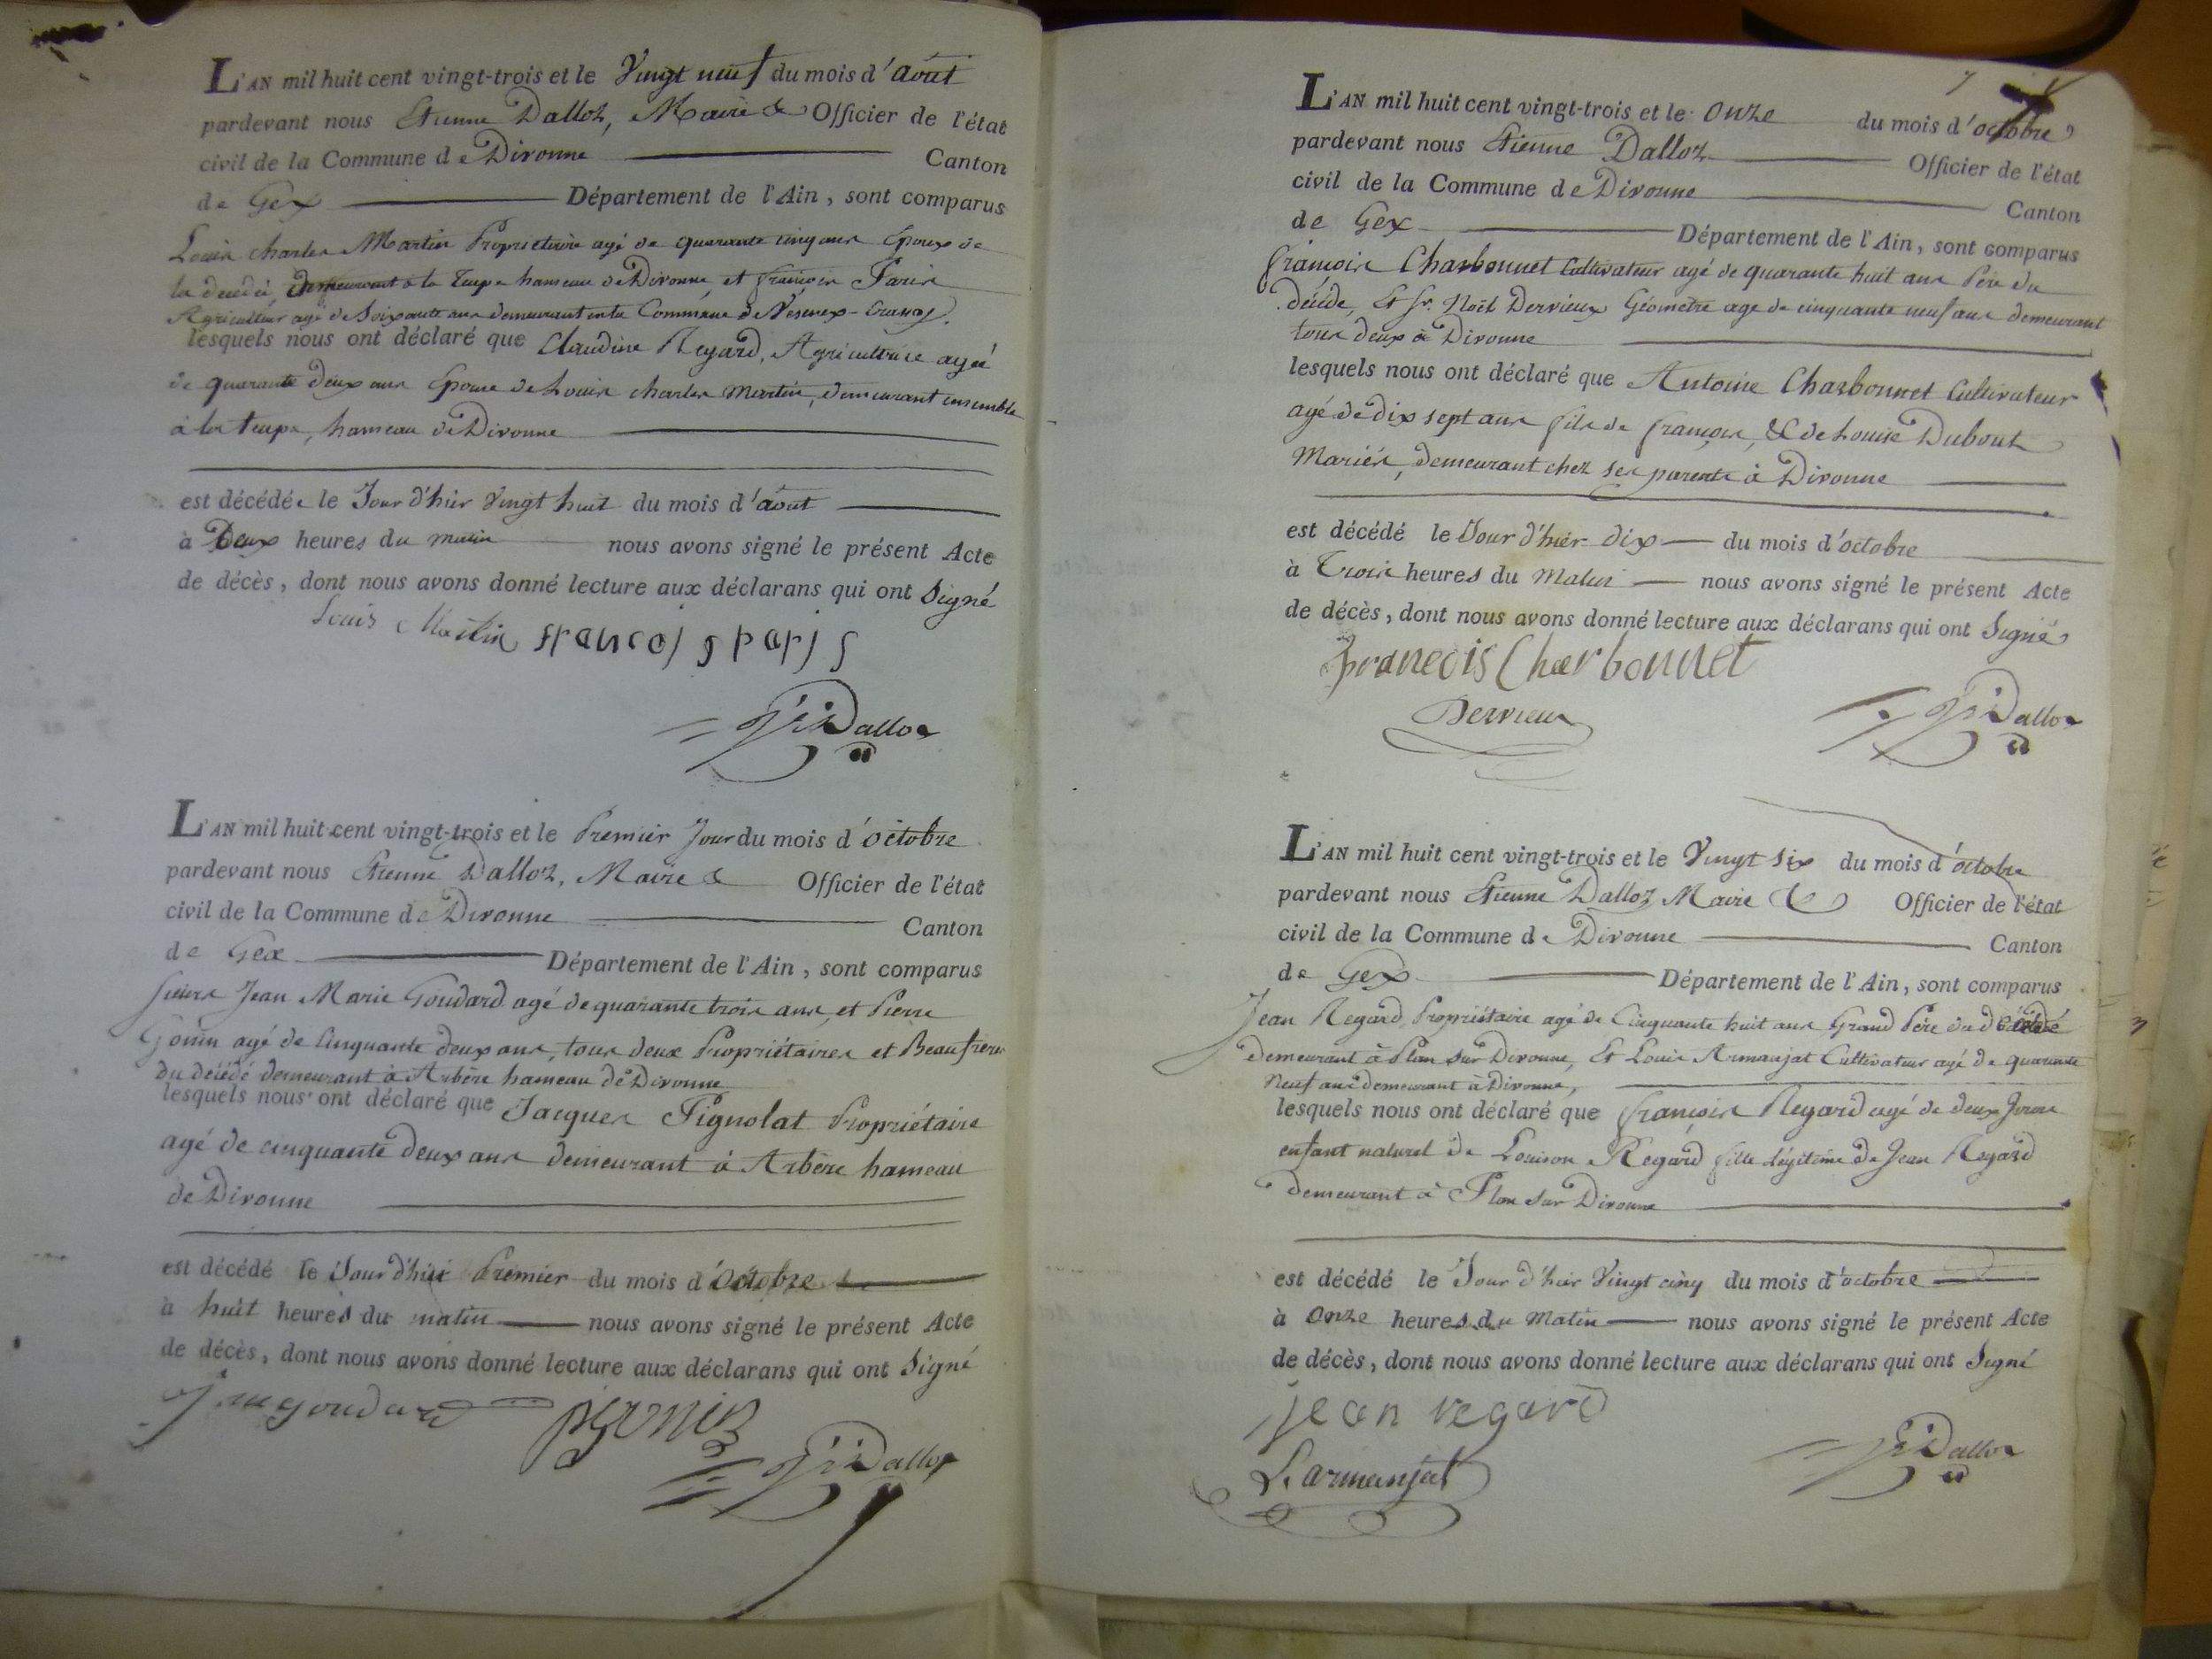 L'AN mil huit cent vingt-trois et le Vingt neuf du mois d'août
pardevant nous Etienne Dalloz, Maire & Officier de l'état
civil de la Commune de Divonne Canton
de Gex Département de l'Ain, sont comparus
Louis Charles Martin Propriétaire agé de quarante cinq ans Epoux de
la décédée, demeurant à la hameau de Divonne, et françois Paris
Agriculteur agé de Soixante ans demeurant en la Commune de Vésenex-Crassy.
lesquels nous ont déclaré que Claudine Regard, Agricultrice agée
de quarante deux ans Epouse de Louis charles Martin, demeurant ensemble
à la hameau de Divonne
est décédée le Jour d'hier Vingt huit du mois d'août
à Deux heures du matin nous avons signé le présent Acte
de décès, dont nous avons donné lecture aux déclarans qui ont Signé
Louis Martin francois paris
Dalloz
L'AN mil huit cent vingt-trois et le Premier Jour du mois d'octobre
pardevant nous Etienne Dalloz, Maire & Officier de l'état
civil de la Commune de Divonne Canton
de Gex Département de l'Ain, sont comparus
sieurs Jean Marie Goudard agé de quarante trois ans, et Pierre
Gonin agé de Cinquante deux ans, tous deux Propriétaires et Beaufrères
du décédé demeurant à Arbère hameau de Divonne
lesquels nous ont déclaré que Jacques Pignolat Propriétaire
agé de cinquante deux ans demeurant à Arbère hameau
de Divonne
est décédé le Jour d'hui Premier du mois d'Octobre
à huit heures du matin nous avons signé le présent Acte
de décès, dont nous avons donné lecture aux déclarans qui ont Signé
goudard
Dalloz
7
L'AN mil huit cent vingt-trois et le Onze du mois d'octobre
pardevant nous Etienne Dalloz Officier de l'état
civil de la Commune de Divonne Canton
de Gex Département de l'Ain, sont comparus
françois Charbonnet Cultivateur agé de quarante huit ans Père du
décédé, Et Sr. Noël Dervieux Géomètre age de cinquante neuf ans demeurant
tous deux à Divonne
lesquels nous ont déclaré que Antoine Charbonnet Cultivateur
agé de dix sept ans fils de françois, & de Louise Dubout
Mariés, demeurant chez ses parents à Divonne
est décédé le Jour d'hier dix du mois d'octobre
à Trois heures du Matin nous avons signé le présent Acte
de décès, dont nous avons donné lecture aux déclarans qui ont Signé
francois Charbonnet
Dervieux Dalloz
L'AN mil huit cent vingt-trois et le Vingt six du mois d'octobre
pardevant nous Etienne Dalloz Maire & Officier de l'état
civil de la Commune de Divonne Canton
de Gex Département de l'Ain, sont comparus
Jean Regard Propriétaire agé de Cinquante huit ans Grand Père du décédé
demeurant à Plan sur Divonne, Et Louis Armanjat Cultivateur agé de quarante
neuf ans demeurant à Divonne,
lesquels nous ont déclaré que françois Regard agé de deux Jours
enfant naturel de Louison Regard fille légitime de Jean Regard
demeurant à Plan sur Divonne
est décédé le Jour d'hier Vingt cinq du mois d'octobre
à Onze heures du Matin nous avons signé le présent Acte
de décès, dont nous avons donné lecture aux déclarans qui ont Signé
jean regard
L. armanjat Dalloz